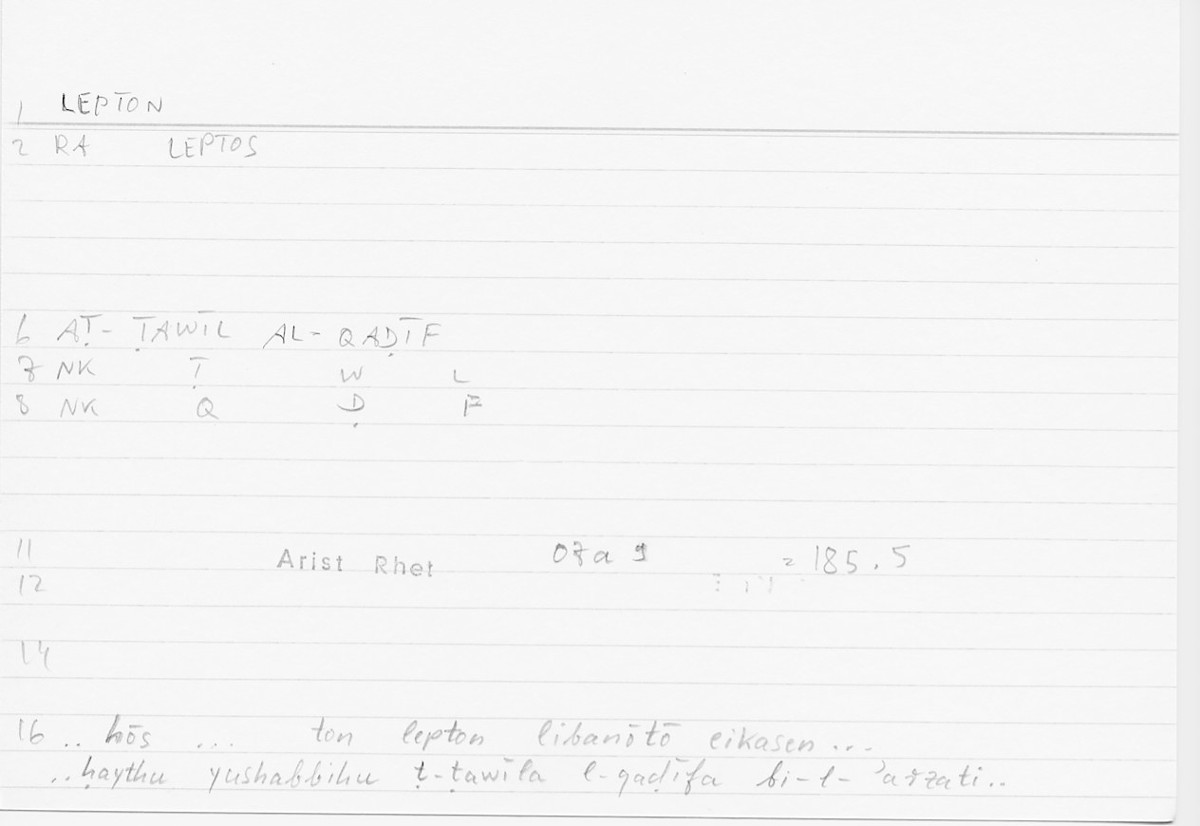 1 LEPTON
2 RA LEPTOS
6 AṬ- ṬAWĪL AL- QAḌĪF
7 NK Ṭ W L
8 NK Q Ḍ F
11 Arist Rhet 07a9 = 185.5
12
14
16 .. hōs ... ton lepton libanōtō eikasen ...
.. ḥaythu yushabbihu ṭ-ṭawīla l-qaḍīfa bi-l-ʾarzati..